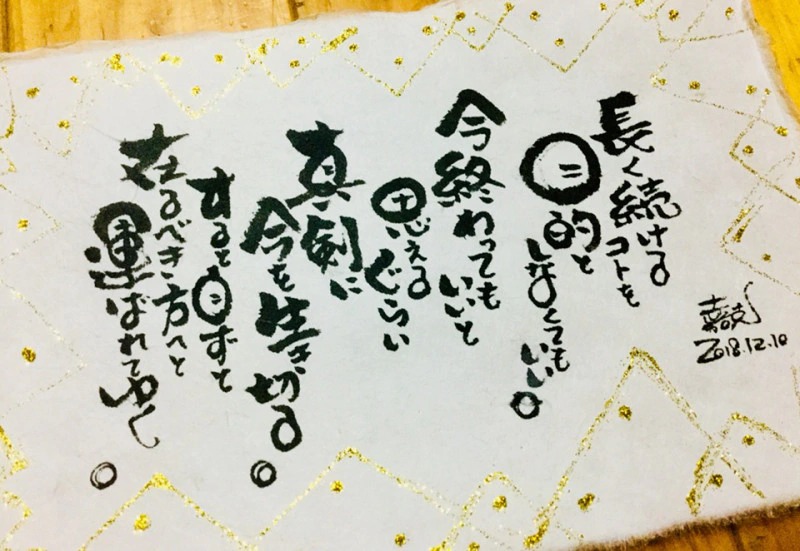 長く続けるコトを
目的としなくてもいい。
今終わってもいいと
思えるぐらい
真剣に
今を生き切る。
すると自ずと
在るべき方へと
運ばれてゆく。
2018.12.10